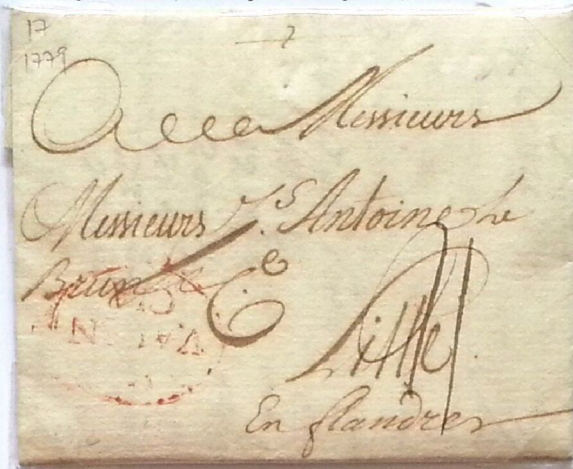 17
1779
A Messieurs
Messieurs J.s Antoine Le
Brun & C.e
Lille
En flandres